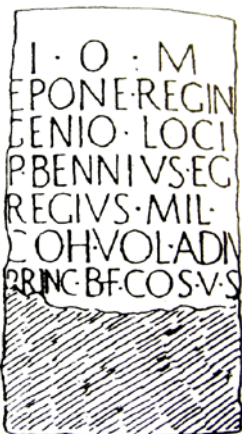 I · O · M
EPONE·REGIN
GENIO · LOCI
P·BENNIVS·EG
REGIVS·MIL·
COH·VOL·ADIV
PRINC·BF·COS·V·S